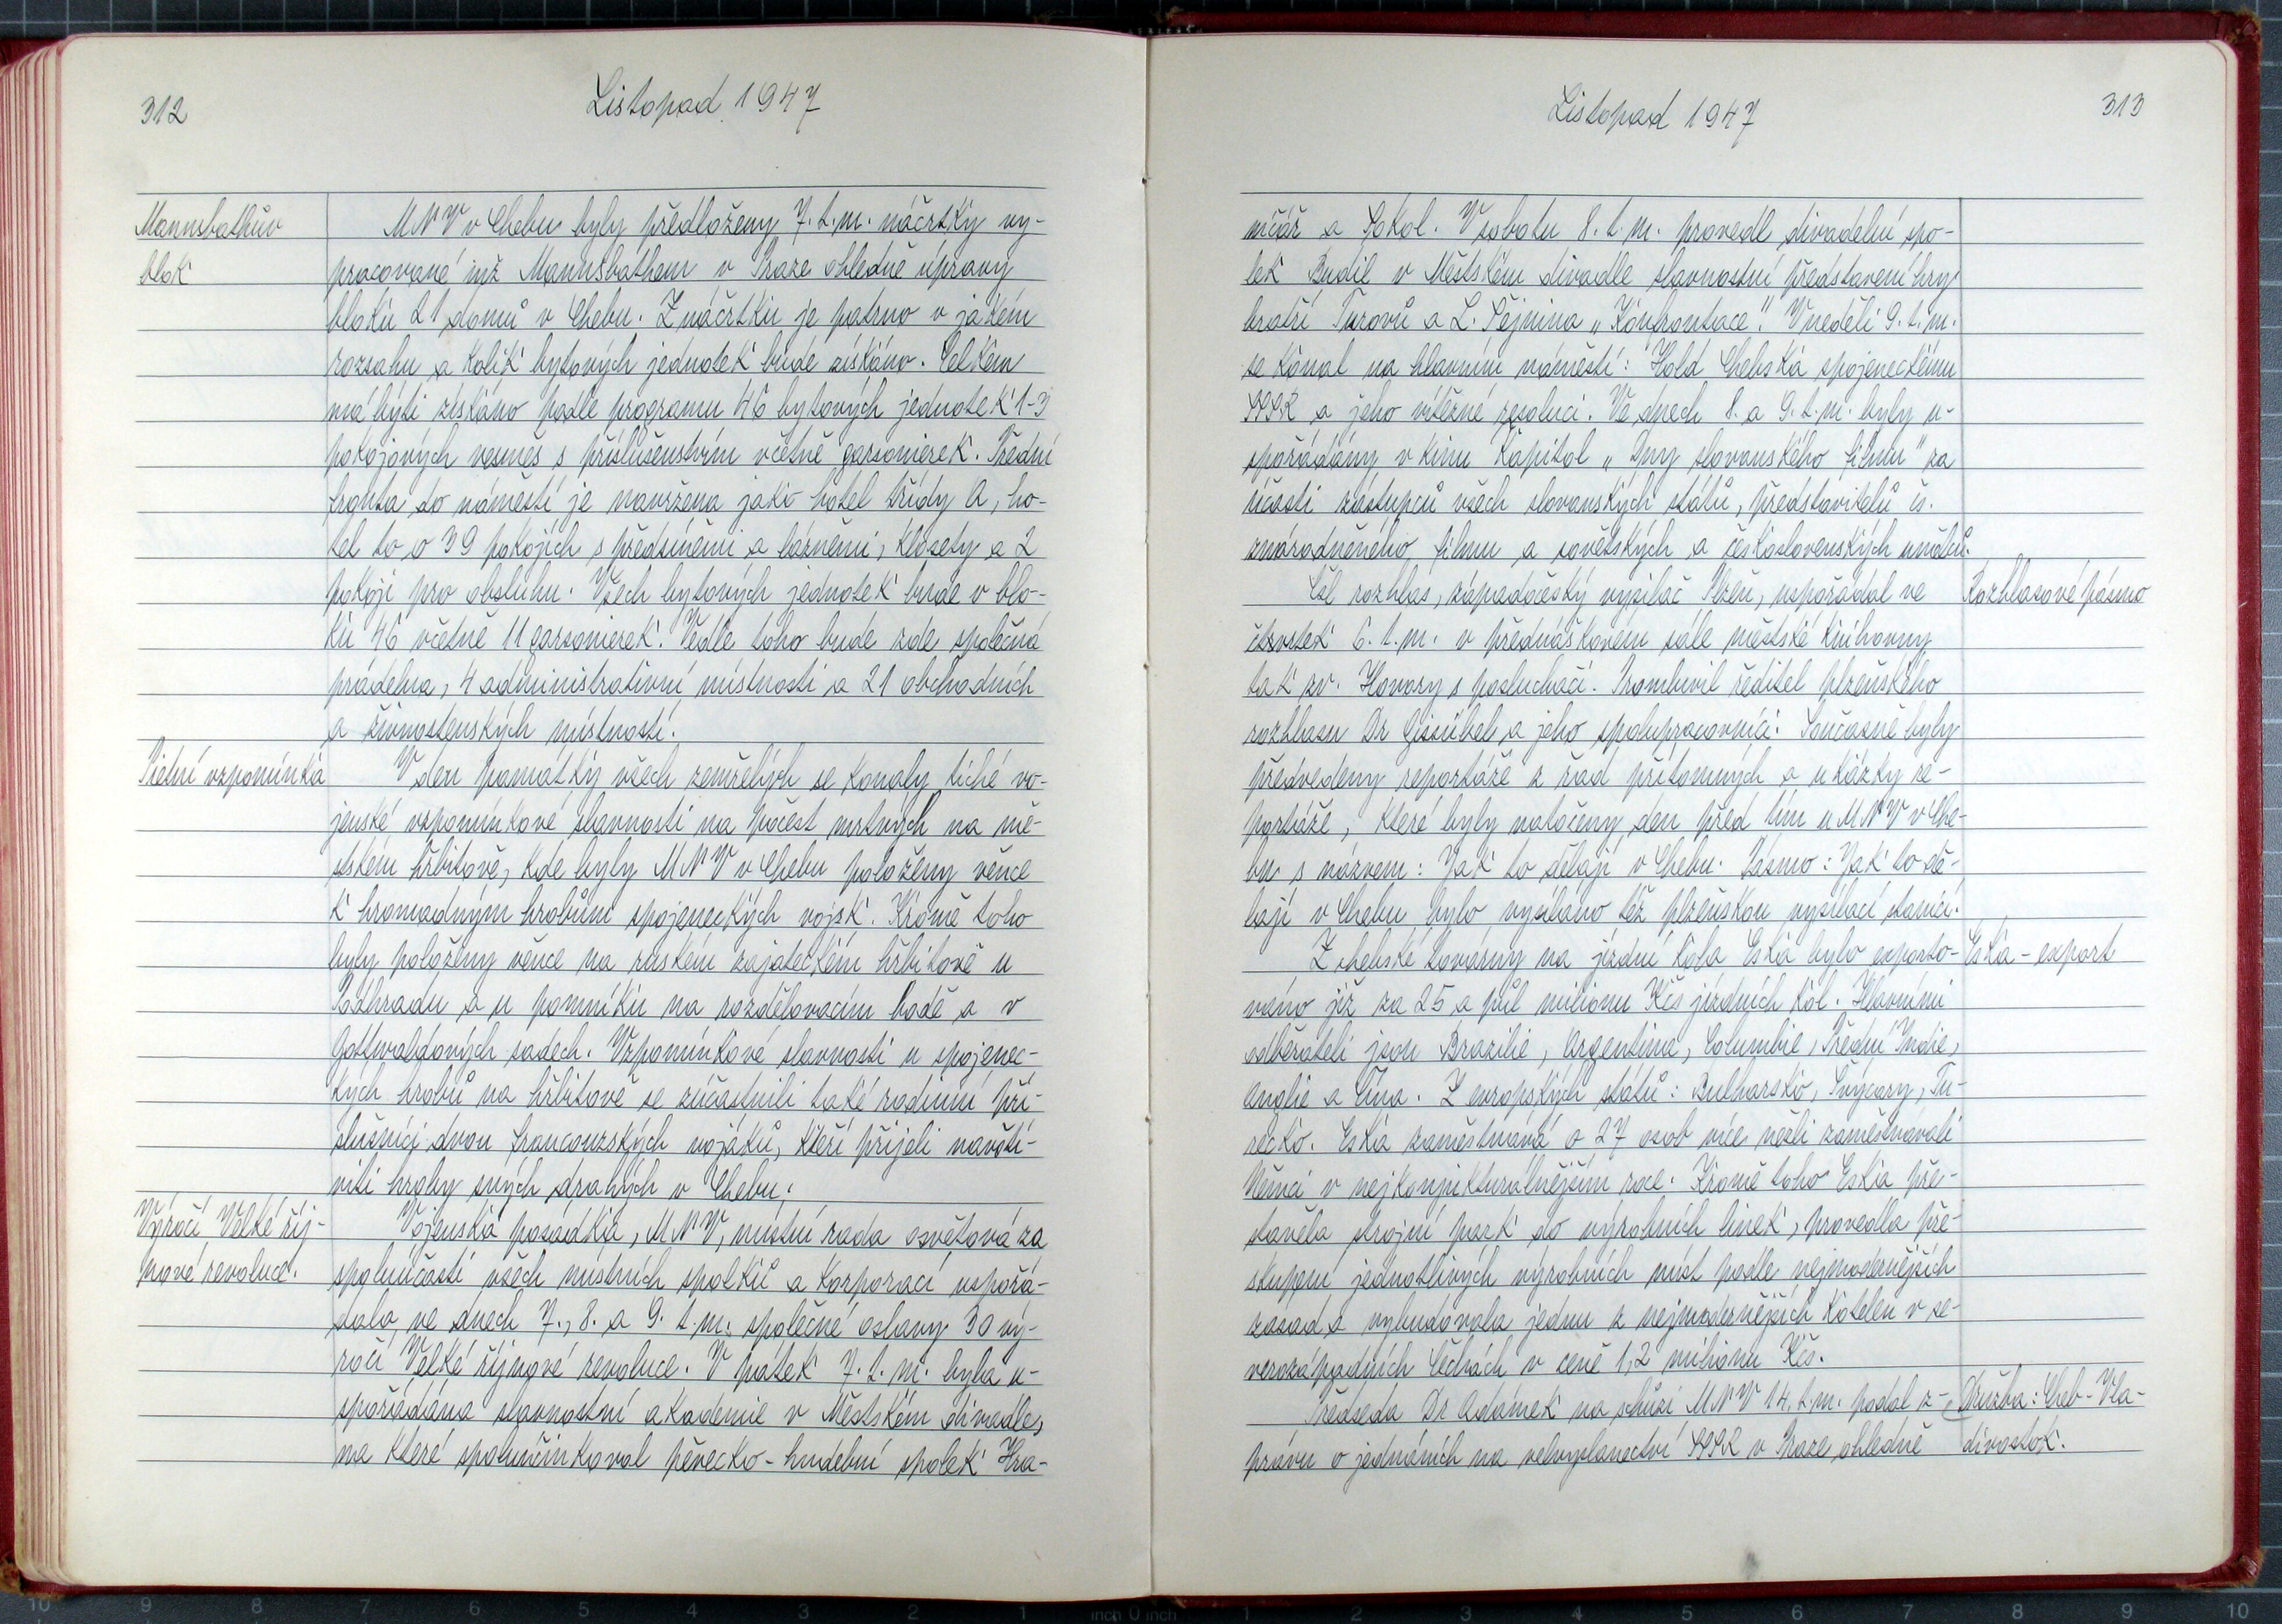 312
Listopad 1947
Mannsbathův
blok
MNV v Chebu byly předloženy 7. t. m. náčrtky vy-
pracované inž Mannsbathem v Praze ohledně úpravy
bloku 21 domů v Chebu. Z náčrtku je patrno v jakém
rozsahu a kolik bytových jednotek bude získáno. Celkem
má býti získáno podle programu 46 bytových jednotek 1-3
pokojových vesměs s příslušenstvím včetně garsonierek. Přední
fronta do náměstí je navržena jako hotel třídy A, ho-
tel to o 39 pokojích s předsíněmi a lázněmi, klosety a 2
pokoji pro obsluhu. Všech bytových jednotek bude v blo-
ku 46 včetně 11 garsonierek. Vedle toho bude zde společná
prádelna, 4 administrativní místnosti a 21 obchodních
a živnostenských místností.
Pietní vzpomínka
V den památky všech zemřelých se konaly tiché vo-
jenské vzpomínkové slavnosti na počest mrtvých na mě-
stském hřbitově, kde byly MNV v Chebu položeny věnce
k hromadným hrobům spojeneckých vojsk. Kromě toho
byly položeny věnce na ruském zajateckém hřbitově u
Podhradu a u pomníku na rozdělovacím bodě a v
Gottwaldových sadech. Vzpomínkové slavnosti u spojenec-
kých hrobů na hřbitově se zúčastnili také rodinní pří-
slušníci dvou francouzských vojáků, kteří přijeli navští-
viti hroby svých drahých v Chebu.
Výročí Velké říj-
nové revoluce.
Vojenská posádka, MNV, místní rada osvětová za
spoluúčasti všech místních spolků a korporací uspořá-
dala ve dnech 7., 8. a 9. t. m. společné oslavy 30 vý-
ročí Velké říjnové revoluce. V pátek 7. t. m. byla u-
spořádána slavnostní akademie v Městském divadle,
na které spoluúčinkoval pěvecko-hudební spolek Hra-
Listopad 1947
313
ničář a Sokol. V sobotu 8. t. m. provedl divadelní spo-
lek Budil v Městském divadle slavnostní představení hry
bratří Turovů a L. Šejnina „Konfrontace". V neděli 9. t. m.
se konal na hlavním náměstí: Hold Chebska spojeneckému
SSSR a jeho vítězné revoluci. Ve dnech 8. a 9. t. m. byly u-
spořádány v kinu Kapitol „Dny slovanského filmu" za
účasti zástupců všech slovanských států, představitelů čs.
znárodněného filmu a sovětských a československých umělců.
Čsl rozhlas, západočeský vysílač Plzeň, uspořádal ve
Rozhlasové pásmo
čtvrtek 6. t. m. v přednáškovém sále městské knihovny
tak zv. Hovory s posluchači. Promluvil ředitel plzeňského
rozhlasu Dr Gissübel a jeho spolupracovníci. Současně byly
předvedeny reportáže z řad přítomných a ukázky re-
portáže, které byly natočeny den před tím u MNV v Che-
bu s názvem: Jak to dělají v Chebu. Pásmo: Jak to dě-
lají v Chebu bylo vysíláno též plzeňskou vysílací stanicí.
Z chebské továrny na jízdní kola Eska bylo exporto-
Eska - export
váno již za 25 a půl milionu Kčs jízdních kol. Hlavními
odběrateli jsou Brazilie, Argentina, Columbie, Přední Indie,
Anglie a Čína. Z evropských států: Bulharsko, Švýcary, Tu-
recko. Eska zaměstnává o 27 osob více nežli zaměstnávali
Němci v nejkonjukturálnějším roce. Kromě toho Eska pře-
stavěla strojní park do výrobních linek, provedla pře-
skupení jednotlivých výrobních míst podle nejmodernějších
zásad a vybudovala jednu z nejmodernějších kotelen v se-
verozápadních Čechách v ceně 1,2 milionu Kčs.
Předseda Dr Adámek na schůzi MNV 14. t. m. podal z-
Družba: Cheb - Vla-
právu o jednáních na velvyslanectví SSSR v Praze ohledně
divostok.